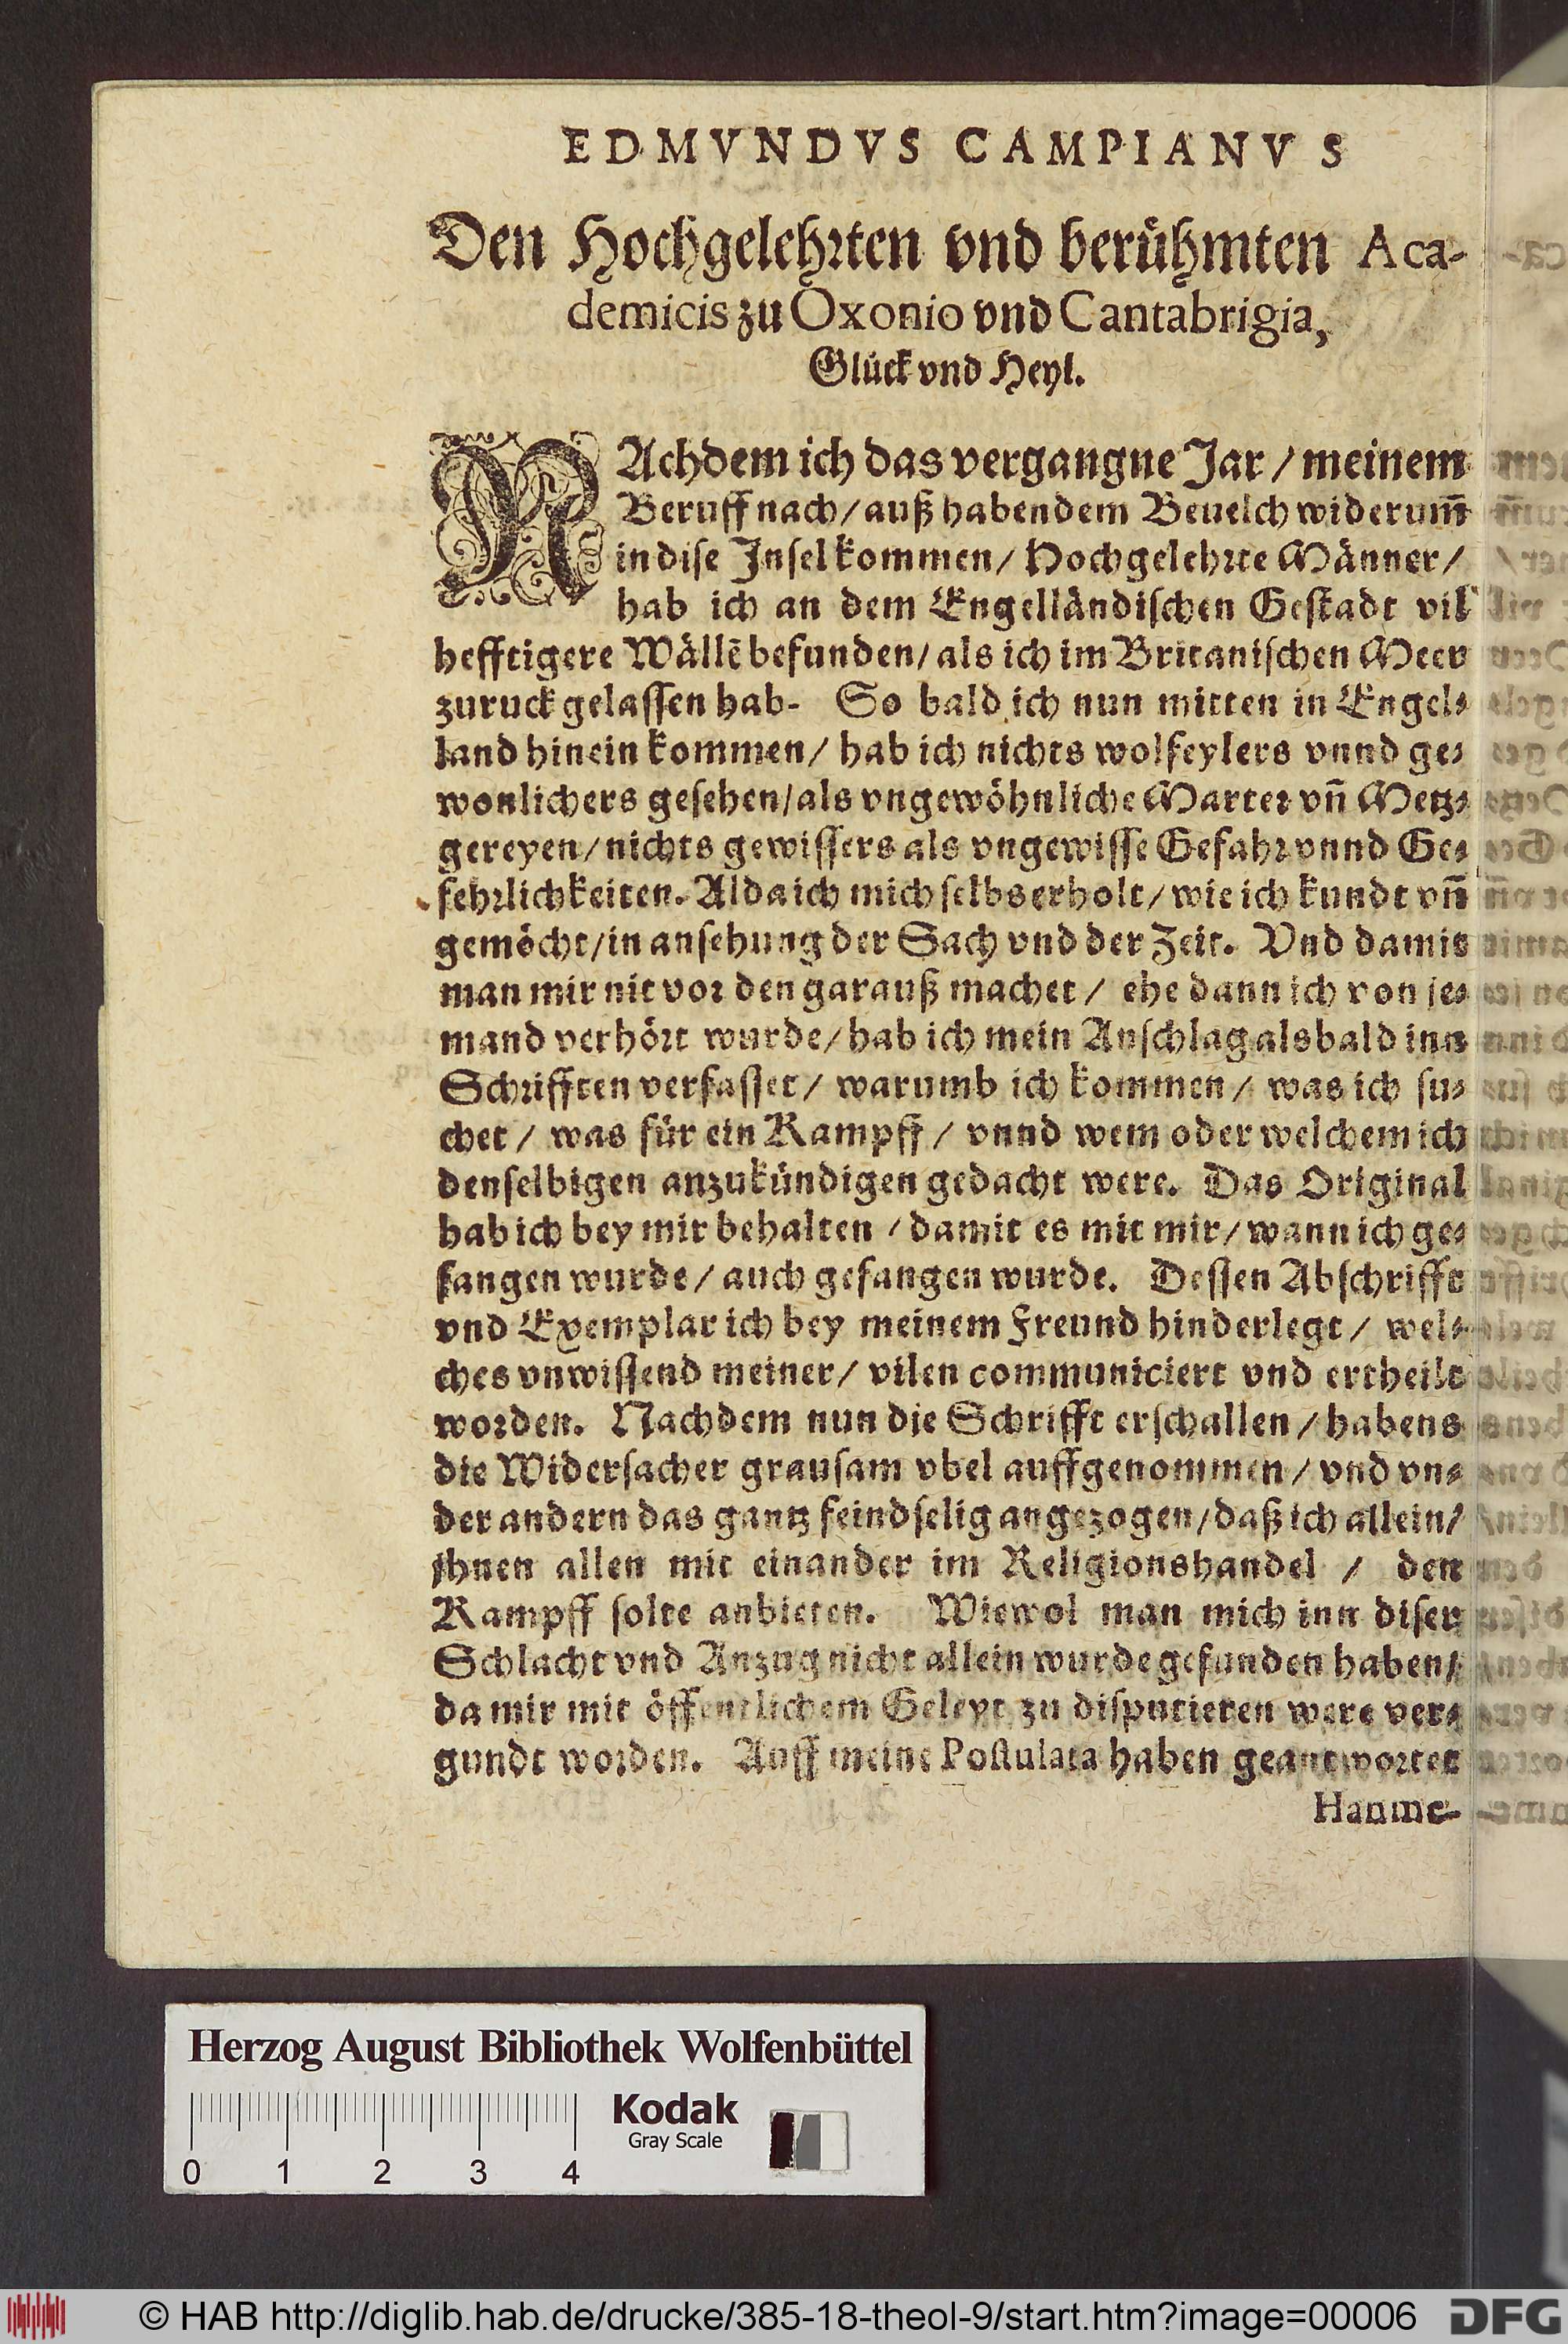 EDMVNDVS CAMPIANVS
Den Hochgelehrten vnd berühmten Aca-
demicis zu Oxonio vnd Cantabrigia,
Glück vnd Heyl.
NAchdem ich das vergangne Jar / meinem
Beruff nach / auß habendem Beuelch widerum̄
in dise Insel kommen / Hochgelehrte Männer /
hab ich an dem Engelländischen Gestadt vil
hefftigere Wällē befunden / als ich im Britanischen Meer
zuruck gelassen hab. So bald ich nun mitten in Engel-
land hinein kommen / hab ich nichts wolfeylers vnnd ge-
wonlichers gesehen / als vngewöhnliche Marter vn̄ Metz-
gereyen / nichts gewissers als vngewisse Gefahr vnnd Ge-
fehrlichkeiten. Alda ich mich selbs erholt / wie ich kundt vn̄
gemöcht / in ansehung der Sach vnd der Zeit. Vnd damit
man mir nit vor den garauß machet / ehe dann ich von je-
mand verhört wurde / hab ich mein Anschlag alsbald inn
Schrifften verfasset / warumb ich kommen / was ich su-
chet / was für ein Kampff / vnnd wem oder welchem ich
denselbigen anzukündigen gedacht were. Das Original
hab ich bey mir behalten / damit es mit mir / wann ich ge-
fangen wurde / auch gefangen wurde. Dessen Abschrifft
vnd Exemplar ich bey meinem Freund hinderlegt / wel-
ches vnwissend meiner / vilen communiciert vnd ertheilt
worden. Nachdem nun die Schrifft erschallen / habens
die Widersacher grausam vbel auffgenommen / vnd vn-
der andern das gantz feindselig angezogen / daß ich allein /
jhnen allen mit einander im Religionshandel / den
Kampff solte anbieten. Wiewol man mich inn diser
Schlacht vnd Anzug nicht allein wurde gefunden haben /
da mir mit öffentlichem Geleyt zu disputieren were ver-
gundt worden. Auff meine Postulata haben geantwortet
Hanme-
Herzog August Bibliothek Wolfenbüttel
Kodak
Gray Scale
0 1 2 3 4
© HAB http://diglib.hab.de/drucke/385-18-theol-9/start.htm?image=00006
DFG